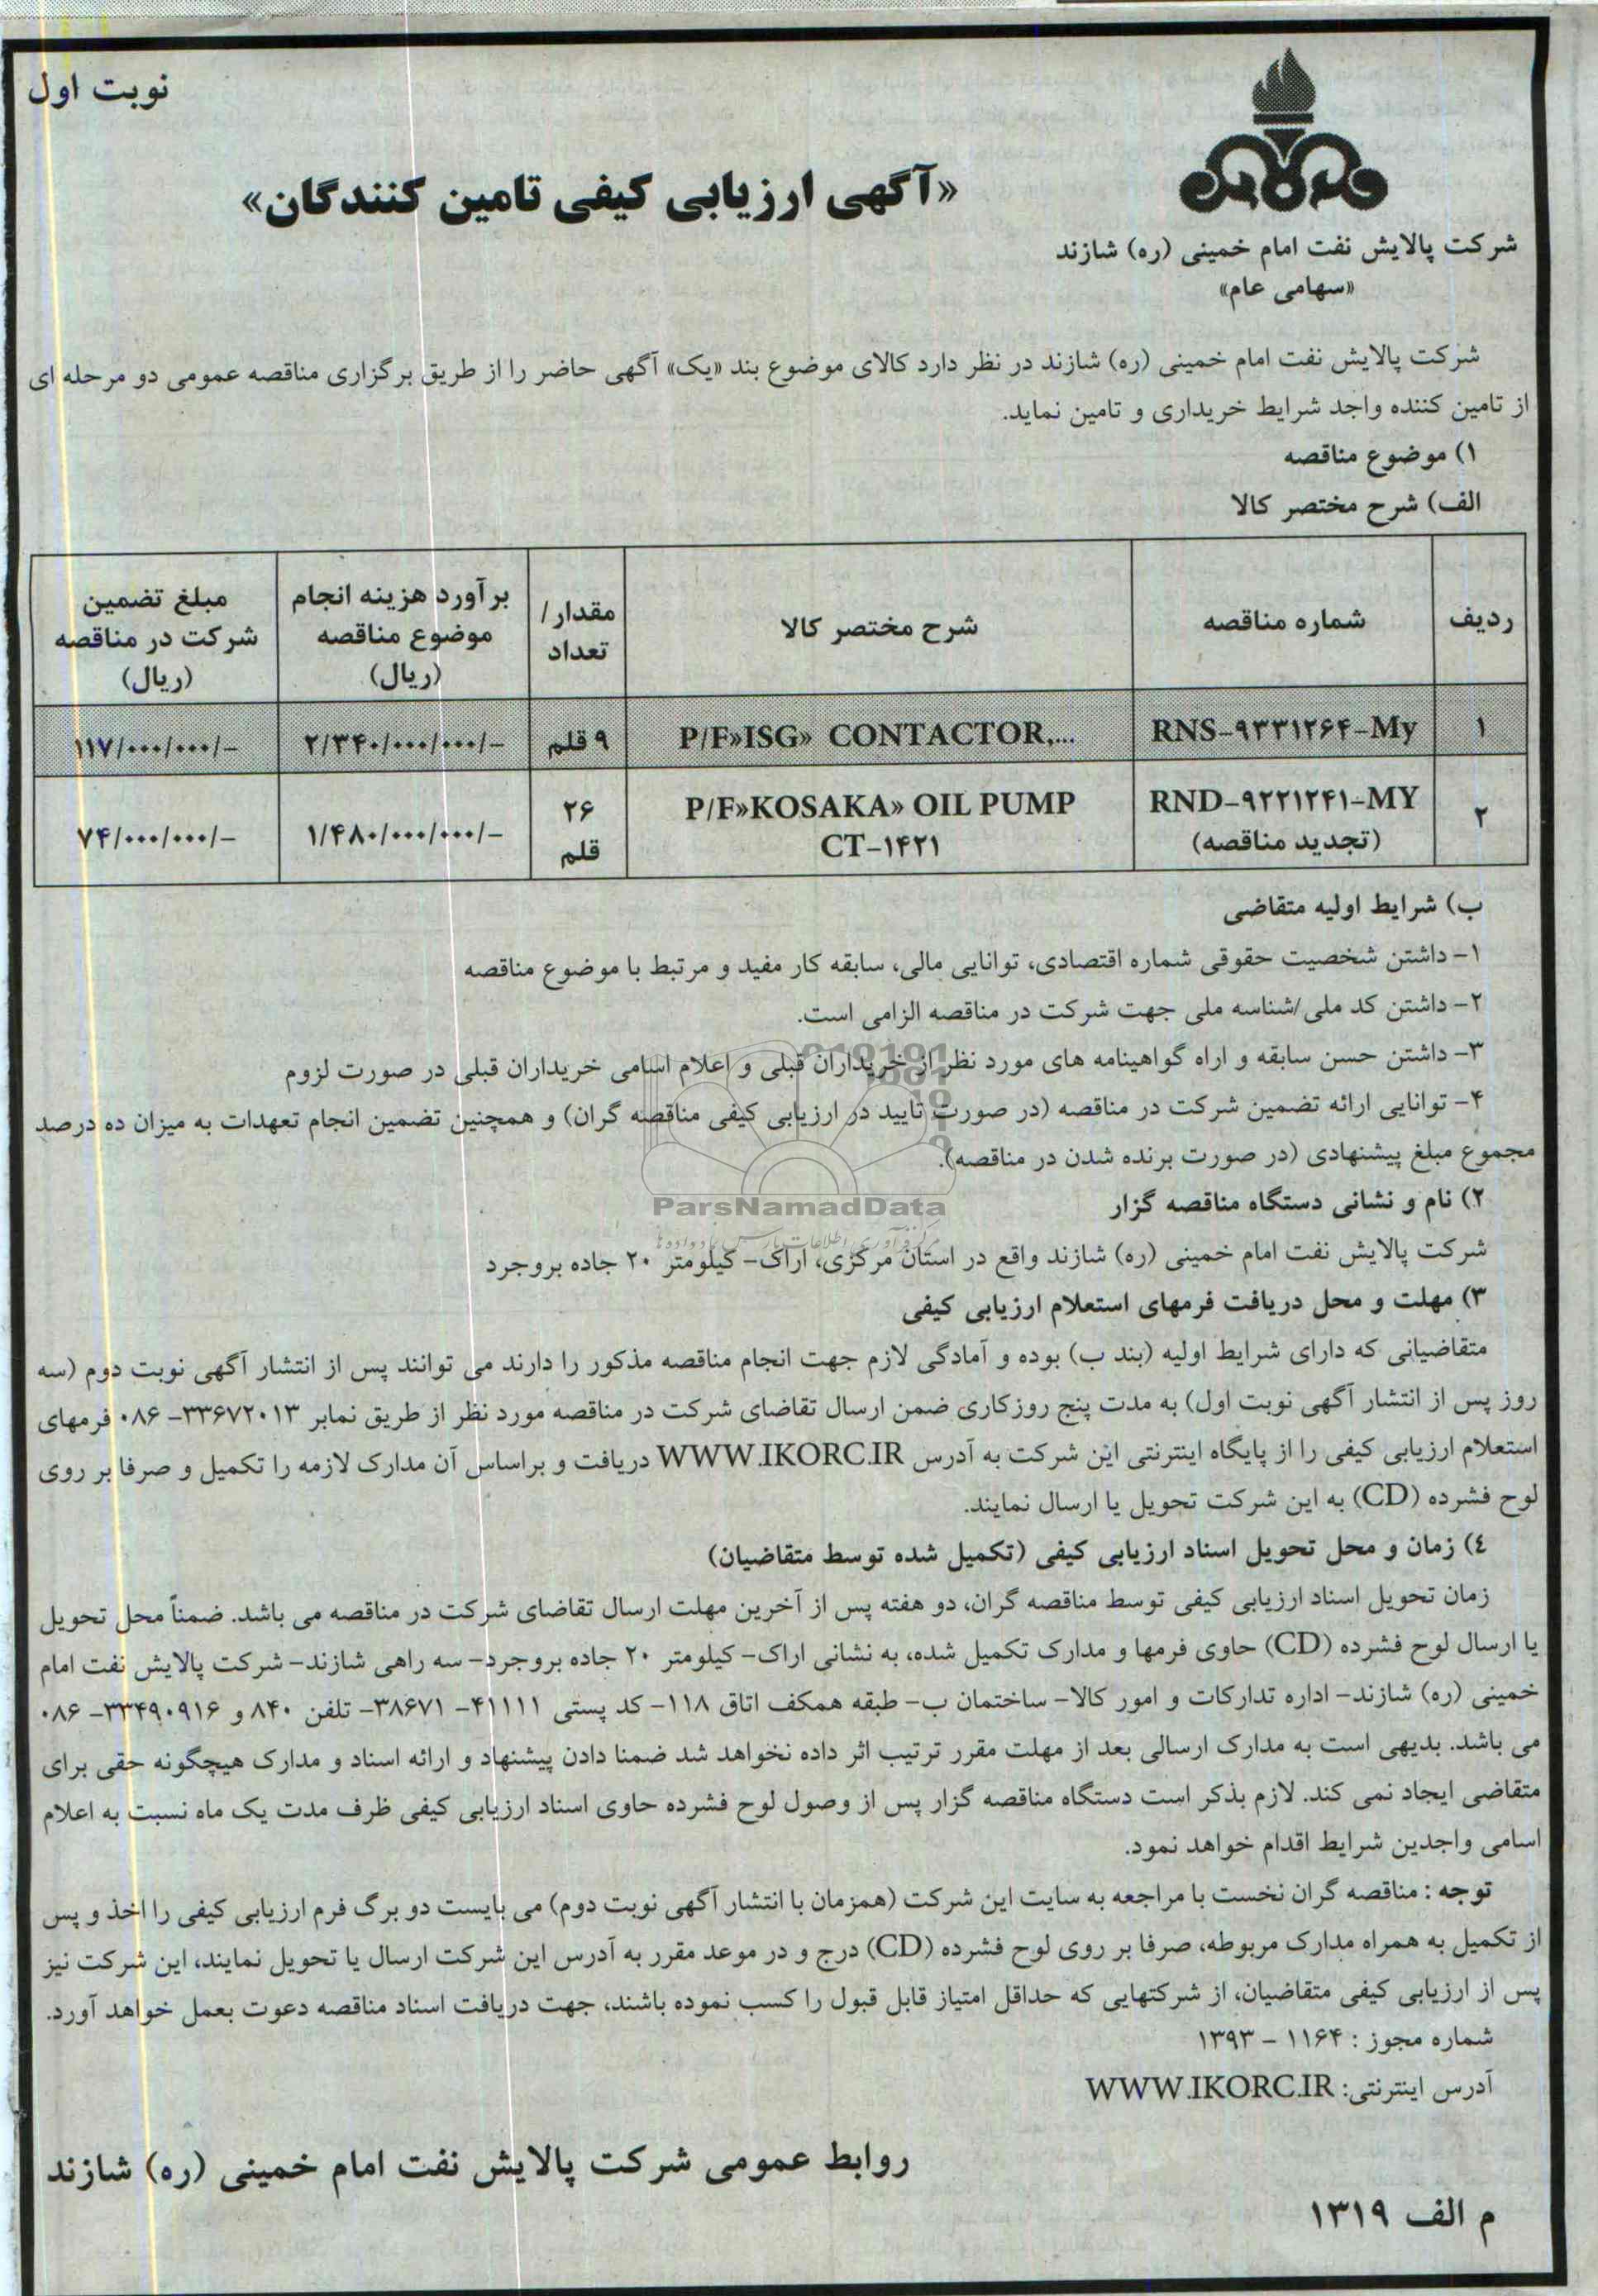 نوبت اول
«آگهی ارزیابی کیفی تامین کنندگان»
شرکت پالایش نفت امام خمینی (ره) شازند
«سهامی عام»
شرکت پالایش نفت امام خمینی (ره) شازند در نظر دارد کالای موضوع بند «یک» آگهی حاضر را از طریق برگزاری مناقصه عمومی دو مرحله ای
از تامین کننده واجد شرایط خریداری و تامین نماید.
۱) موضوع مناقصه
الف) شرح مختصر کالا
ردیف | شماره مناقصه | شرح مختصر کالا | مقدار/ تعداد | برآورد هزینه انجام موضوع مناقصه (ریال) | مبلغ تضمین شرکت در مناقصه (ریال)
۱ | RNS-۹۳۳۱۲۶۴-My | P/F»ISG» CONTACTOR,... | ۹ قلم | ۲/۳۴۰/۰۰۰/۰۰۰/- | ۱۱۷/۰۰۰/۰۰۰/-
۲ | RND-۹۲۲۱۲۴۱-MY (تجدید مناقصه) | P/F»KOSAKA» OIL PUMP CT-۱۴۲۱ | ۲۶ قلم | ۱/۴۸۰/۰۰۰/۰۰۰/- | ۷۴/۰۰۰/۰۰۰/-
ب) شرایط اولیه متقاضی
۱- داشتن شخصیت حقوقی شماره اقتصادی، توانایی مالی، سابقه کار مفید و مرتبط با موضوع مناقصه
۲- داشتن کد ملی/شناسه ملی جهت شرکت در مناقصه الزامی است.
۳- داشتن حسن سابقه و اراه گواهینامه های مورد نظر از خریداران قبلی و اعلام اسامی خریداران قبلی در صورت لزوم
۴- توانایی ارائه تضمین شرکت در مناقصه (در صورت تایید در ارزیابی کیفی مناقصه گران) و همچنین تضمین انجام تعهدات به میزان ده درصد
مجموع مبلغ پیشنهادی (در صورت برنده شدن در مناقصه).
ParsNamadData
۲) نام و نشانی دستگاه مناقصه گزار
شرکت پالایش نفت امام خمینی (ره) شازند واقع در استان مرکزی، اراک- کیلومتر ۲۰ جاده بروجرد
۳) مهلت و محل دریافت فرمهای استعلام ارزیابی کیفی
متقاضیانی که دارای شرایط اولیه (بند ب) بوده و آمادگی لازم جهت انجام مناقصه مذکور را دارند می توانند پس از انتشار آگهی نوبت دوم (سه
روز پس از انتشار آگهی نوبت اول) به مدت پنج روزکاری ضمن ارسال تقاضای شرکت در مناقصه مورد نظر از طریق نمابر ۳۳۶۷۲۰۱۳- ۰۸۶ فرمهای
استعلام ارزیابی کیفی را از پایگاه اینترنتی این شرکت به آدرس WWW.IKORC.IR دریافت و براساس آن مدارک لازمه را تکمیل و صرفا بر روی
لوح فشرده (CD) به این شرکت تحویل یا ارسال نمایند.
٤) زمان و محل تحویل اسناد ارزیابی کیفی (تکمیل شده توسط متقاضیان)
زمان تحویل اسناد ارزیابی کیفی توسط مناقصه گران، دو هفته پس از آخرین مهلت ارسال تقاضای شرکت در مناقصه می باشد. ضمناً محل تحویل
یا ارسال لوح فشرده (CD) حاوی فرمها و مدارک تکمیل شده، به نشانی اراک- کیلومتر ۲۰ جاده بروجرد- سه راهی شازند- شرکت پالایش نفت امام
خمینی (ره) شازند- اداره تدارکات و امور کالا- ساختمان ب- طبقه همکف اتاق ۱۱۸- کد پستی ۴۱۱۱۱- ۳۸۶۷۱- تلفن ۸۴۰ و ۳۳۴۹۰۹۱۶- ۰۸۶
می باشد. بدیهی است به مدارک ارسالی بعد از مهلت مقرر ترتیب اثر داده نخواهد شد ضمنا دادن پیشنهاد و ارائه اسناد و مدارک هیچگونه حقی برای
متقاضی ایجاد نمی کند. لازم بذکر است دستگاه مناقصه گزار پس از وصول لوح فشرده حاوی اسناد ارزیابی کیفی ظرف مدت یک ماه نسبت به اعلام
اسامی واجدین شرایط اقدام خواهد نمود.
توجه : مناقصه گران نخست با مراجعه به سایت این شرکت (همزمان با انتشار آگهی نوبت دوم) می بایست دو برگ فرم ارزیابی کیفی را اخذ و پس
از تکمیل به همراه مدارک مربوطه، صرفا بر روی لوح فشرده (CD) درج و در موعد مقرر به آدرس این شرکت ارسال یا تحویل نمایند، این شرکت نیز
پس از ارزیابی کیفی متقاضیان، از شرکتهایی که حداقل امتیاز قابل قبول را کسب نموده باشند، جهت دریافت اسناد مناقصه دعوت بعمل خواهد آورد.
شماره مجوز : ۱۱۶۴ - ۱۳۹۳
آدرس اینترنتی: WWW.IKORC.IR
روابط عمومی شرکت پالایش نفت امام خمینی (ره) شازند
م الف ۱۳۱۹